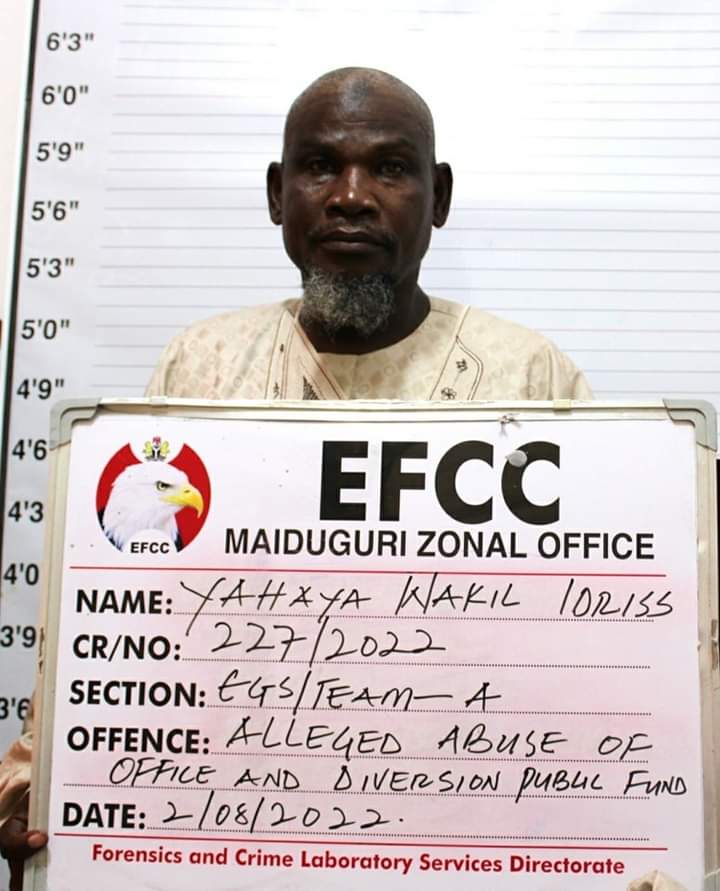 6'3"
6'0"
5'9"
5'6"
5'3"
5'0"
4'9"
4'6
4'3
4'0
3'9
3'6
EFCC
EFCC
MAIDUGURI ZONAL OFFICE
NAME: YAHAYA WAKIL IDRISS
CR/NO: 227/2022
SECTION: EGS/TEAM-A
OFFENCE: ALLEGED ABUSE OF
OFFICE AND DIVERSION PUBLIC FUND
DATE: 2/08/2022.
Forensics and Crime Laboratory Services Directorate